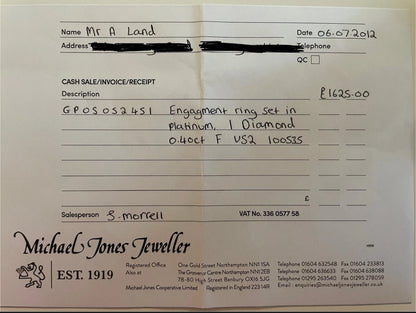 Name Mr A Land Date 06.07.2012
Address Telephone
QC
CASH SALE/INVOICE/RECEIPT
Description £1625.00
GPOS052451 Engagment ring set in
platinum, 1 Diamond
0.40ct F VS2 100535
£
Salesperson S. morrell VAT No. 336 0577 58
Michael Jones Jeweller
EST. 1919
Registered Office One Gold Street Northampton NN1 1SA Telephone 01604 632548 Fax 01604 233813
Also at The Grosvenor Centre Northampton NN1 2EB Telephone 01604 636633 Fax 01604 638088
78-80 High Street Banbury OX16 5JG Telephone 01295 263540 Fax 01295 278059
Michael Jones Cooperative Limited Registered in England 22314R Email: enquiries@michaeljonesjeweller.co.uk